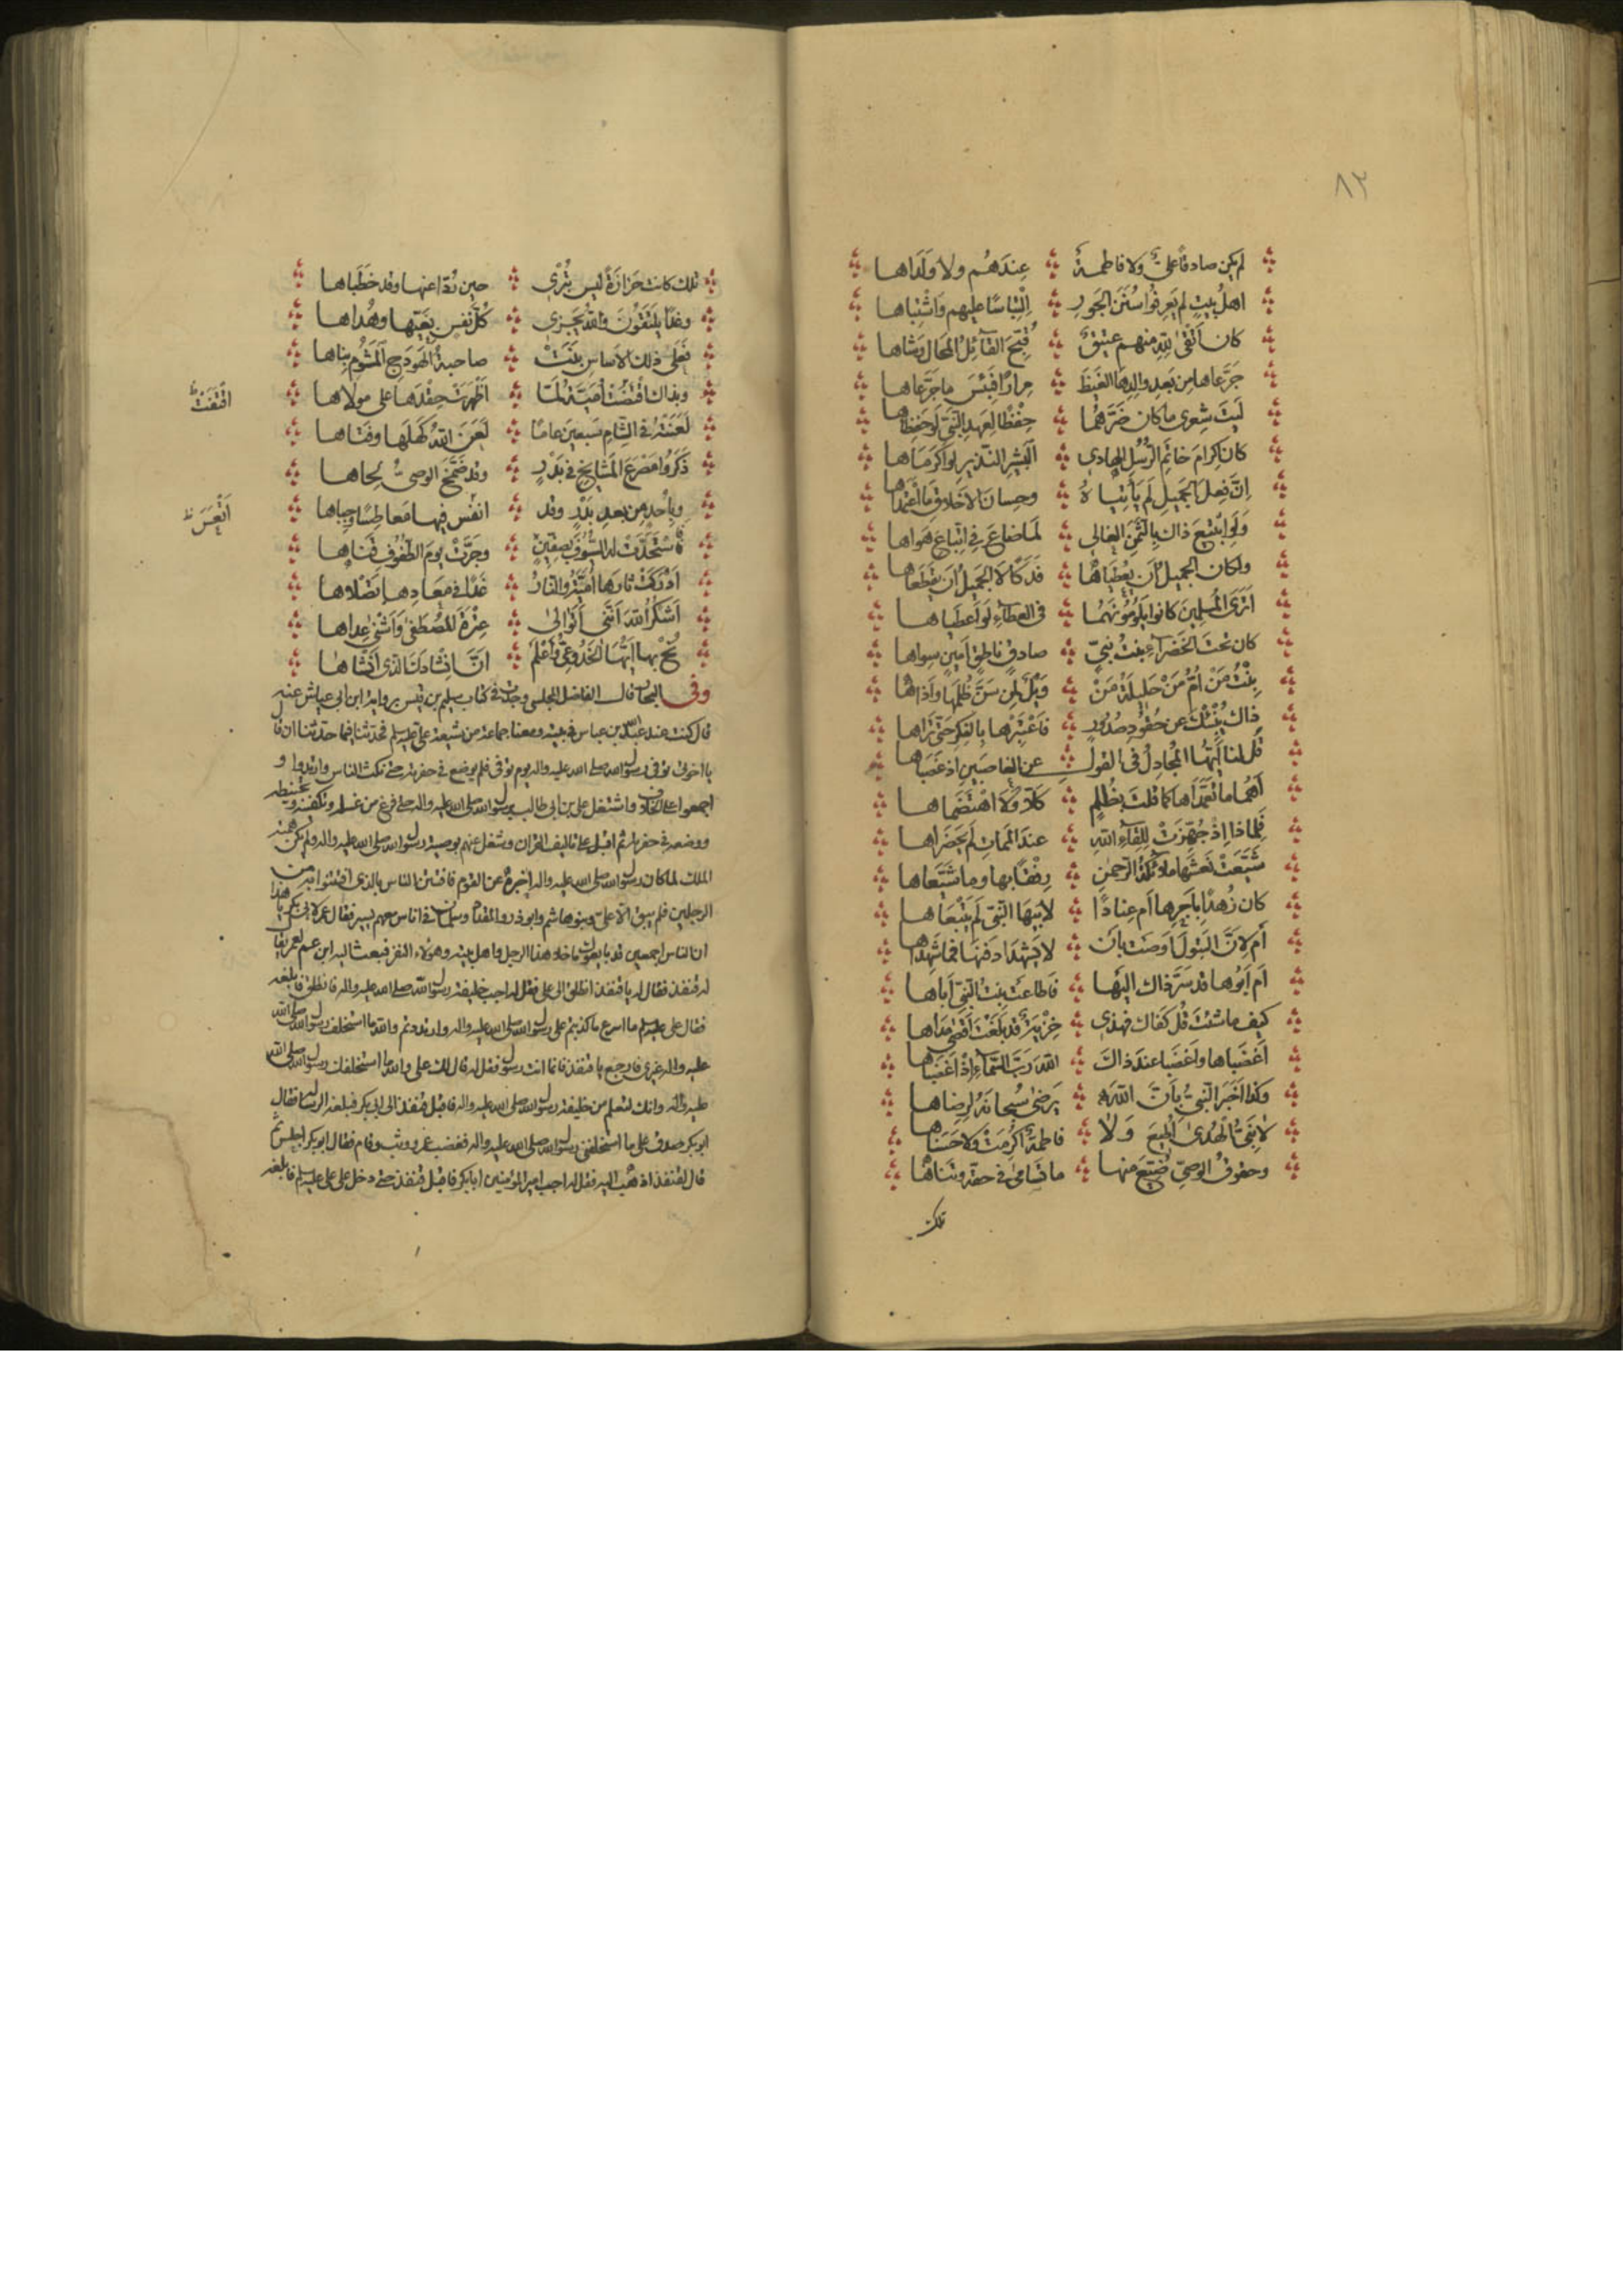 ٨٢
لم يكن صادقا عليٌّ ولا فاطمةُ عِندَهُم ولا وَلَداها
اهلُ بيتٍ لم يَعرِفُوا سُنَنَ الجَورِ اِلْتِباسًا عليهم وَاشْتِباها
كان اَتْقىٰ لِلّهِ منهم عتيقٌ قُبِّحَ القائِلُ المُحالَ وَشاها
جَرَّعاها مِن بَعدِ والِدِهَا الغَيظَ مِرارًا فَبِئسَ ما جَرَّعاها
لَيتَ شِعري ما كان ضَرَّهُما حِفْظًا لِعَهدِ النَّبيِّ لَو حَفِظاها
كان اِكرامَ خاتِمِ الرُّسُلِ الهادي البَشيرِ النَّذيرِ لو اَكرَماها
اِنَّ فِعلَ الجَميلِ لَم يَأتِياهُ وحِسانَ الاَخلاقِ مَا اعْتَمَداها
وَلَوِ ابْتيعَ ذاك بِالثَّمَنِ الغالي لَما ضاعَ فِي اتِّباعِ هَواها
ولكان الجميلُ اَن يُعْطِياها فَدَكًا لَا الجَميلُ اَن يَقطَعاها
اَتَرَى المُسلِمينَ كانوا يَلُومُونَهُما فى العطاءِ لَو اَعطَياها
كان تحتَ الخَضراءِ بنتُ نبيٍّ صادقٍ ناطقٍ اَمينٍ سِواها
بِنْتُ مَنْ اُمُّ مَنْ حَليلَةُ مَنْ وَيْلٌ لِمَن سَنَّ ظُلمَها وَاَذاها
ذاك يُنْبيكَ عن حُقُودِ صُدُورٍ فَاعْتَبِرْها بِالفِكرِ حَتّى تَراها
قُل لنا اَيُّهَا المُجادِلُ فى القولِ عنِ الغاصبَينِ اِذ غَصَباها
اَهُما ما تَعَمَّداها كما قلتَ بِظُلمٍ كَلّا ولا اهْتَضَماها
فَلِماذا اِذْ جُهِّزَتْ لِلِقاءِ اللهِ عندَ المَماتِ لَم يَحضُراها
شَيَّعَتْ نَعْشَها ملائكةُ الرَّحمٰنِ رِفْقًا بها وما شَيَّعاها
كان زُهدًا بِاَجرِها اَم عِنادًا لِاَبيها النَّبيِّ لَم يَتْبَعاها
اَم لِاَنَّ البَتُولَ اَوصَت بِاَن لا يَشهَدا دَفنَها فما شَهِداها
اَم اَبُوها قد سَرَّ ذاك اِلَيها فَاَطاعَت بِنتُ النَّبيِّ اَباها
كيف ما شئتَ قُل كَفاك فهذي خِزيَةٌ قد بَلَغتَ اَقصىٰ مَداها
اَغضَباها واَغضَبا عندَ ذاكَ اللهَ رَبَّ السَّماءِ اِذْ اَغضَباها
وكذا اَخبَرَ النَّبيُّ بِاَنَّ اللهَ يَرضىٰ سُبحانَهُ لِرِضاها
لا نَبِيُّ الهُدىٰ اُطيعَ وَلا فاطمةٌ اُكرِمَتْ ولا حَسَناها
وحقوقُ الوصيِّ ضُيِّعَ منها ما تَسامىٰ في حقّه وتناهٰا
تلك
تلك كانت حَزازَةً ليس تُبرى حين رُدّا عنها وقد خَطَباها
وغدًا يلتَقُونَ واللهُ يَجزى كُلَّ نَفسٍ بِغَيِّها وهُداها
فَعَلى ذلك الاَساسِ بَنَتْ صاحبةُ الهَودَجِ المَشُومِ بِناها
وبذاك اقْتَضَتْ اُمَيَّةُ لَمّا اَظْهَرَتْ حِقْدَها على مولاها
اقْتَفَتْ ظ
لَعَنَتْهُ فى الشّامِ سبعينَ عامًا لَعَنَ اللهُ كَهلَها وفَتاها
ذَكَرُوا مَصرَعَ المَشايِخِ في بَدْرٍ وقد ضَمَّخَ الوصىُّ لِحاها
وبِاُحدٍ مِن بعدِ بَدْرٍ وقد انفس فيها مَعاطِسًا وجِباها
اَتْعَسَ ظ
فَاسْتَجَدَّتْ له السُّيُوفَ بِصِفّينَ وجَرَّتْ يومَ الطُّفُوفِ قَناها
اَدْرَكَتْ ثارَها اُمَيَّةُ والنارُ غَدًا في مَعادِها تَصْلاها
اَشكُرُ اللهَ اَنَّني اَتَوالىٰ عِتْرَةَ المُصطَفىٰ وَاَشنىٰ عِداها
نُح بها اَيُّهَا الجَذُوعيُّ وَاعْلَم اَنَّ اِنشادَكَ الَّذى اَنشاها
وفى البحار قال الفاضل المجلسي وجدت في كتاب سليم بن قيس برواية ابن ابي عياش عنه
قال كنت عند عبد الله بن عباس في بيته ومعنا جماعة من شيعة علي عليه سلم فحدّثنا فيما حدّثنا ان قال
يا اخوتى توفى رسول الله صلى الله عليه واله يوم توفى فلم يوضع في حفرته حتى نكث الناس وارتدوا و
اجمعوا على الخلاف واشتغل علي بن ابي طالب برسول الله صلى الله عليه واله حتى فرغ من غسله وتكفينه وتحنيطه
ووضعه في حفرته ثم اقبل على تاليف القران وشغل عنهم بوصية رسول الله صلى الله عليه واله ولم يكن همته
الملك لما كان رسول الله صلى الله عليه واله اخبره عن القوم فافتتن الناس بالذى افتتنوا به من
الرجلين فلم يبق الّا عليّ وبنوهاشم وابوذر والمقداد وسلمان في اناس معهم يسير فقال عمر لابى بكر يا هذا
ان الناس اجمعين قد بايعوك ما خلا هذا الرجل واهل بيته وهؤلاء النفر فبعث اليه ابن عم لعمر يقال
له قنفذ فقال له يا قنفذ انطلق الى علي فقل له اجب خليفة رسول الله صلى الله عليه واله فانطلق فابلغه
فقال علي عليه سلم ما اسرع ما كذبتم على رسول الله صلى الله عليه واله وارتددتم والله ما استخلف رسول الله صلى الله
عليه واله غيرى فارجع يا قنفذ فانما انت رسول فقل له قال لك علي والله ما استخلفك رسول الله صلى الله
عليه واله وانك لتعلم من خليفة رسول الله صلى الله عليه واله فاقبل قنفذ الى ابي بكر فبلغه الرسالة فقال
ابوبكر صدق علي ما استخلفنى رسول الله صلى الله عليه واله فغضب عمر ووثب وقام فقال ابوبكر اجلس ثم
قال لقنفذ اذهب اليه فقل له اجب امير المؤمنين ابا بكر فاقبل قنفذ حتى دخل على علي عليه سلم فابلغه